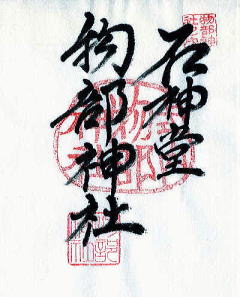 石神堂
物部神社